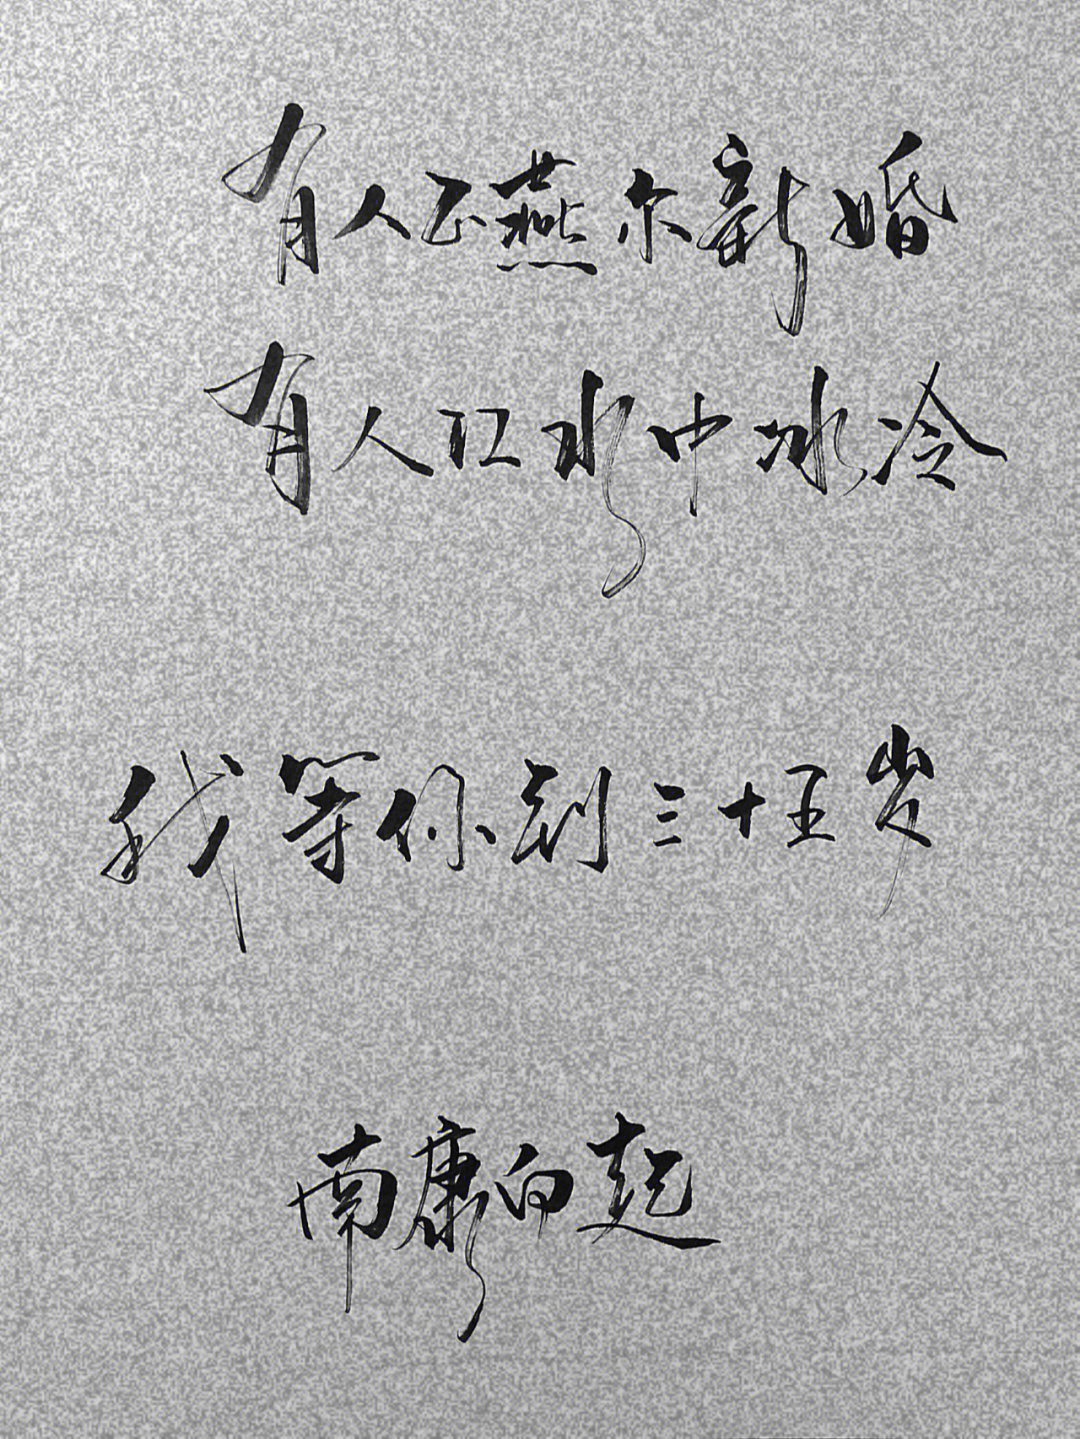 有人正燕尔新婚
有人江水中冰冷
我等你到三十五岁
南康白起